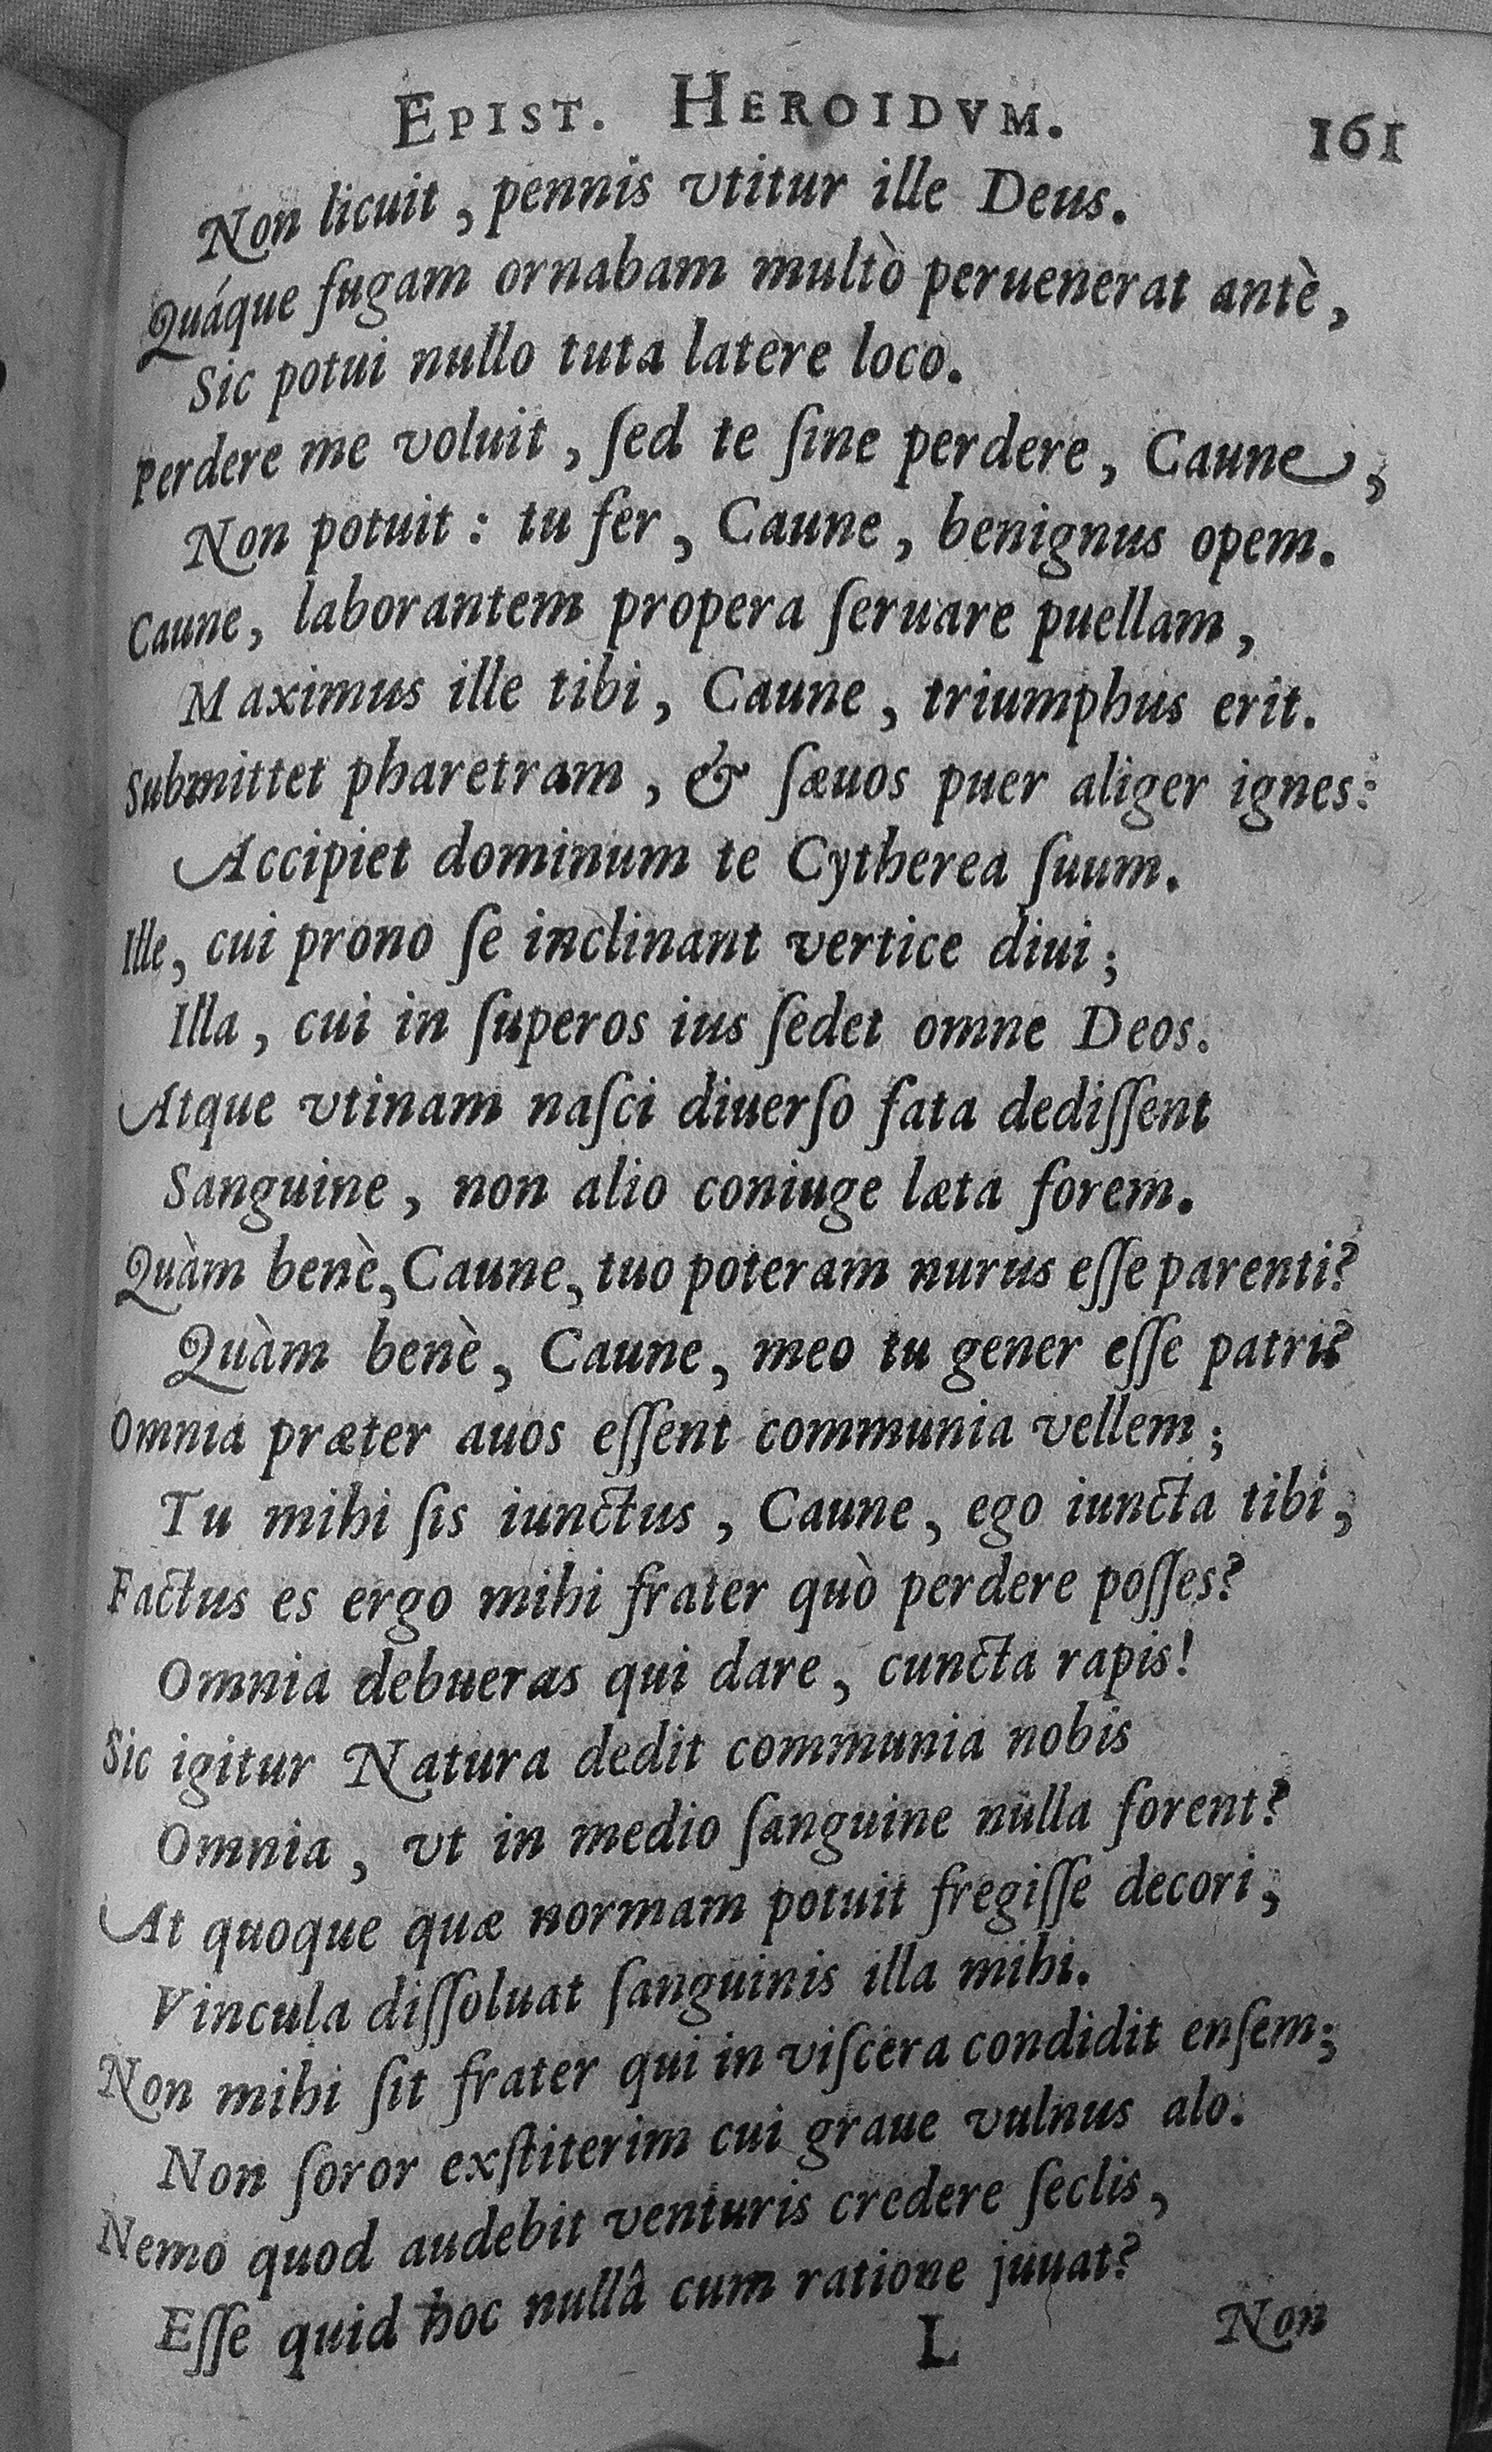 EPIST. HEROIDVM. 161
Non licuit, pennis vtitur ille Deus.
Quáque fugam ornabam multò peruenerat antè,
Sic potui nullo tuta latere loco.
Perdere me voluit, ſed te ſine perdere, Caune,
Non potuit: tu fer, Caune, benignus opem.
Caune, laborantem propera ſeruare puellam,
Maximus ille tibi, Caune, triumphus erit.
Submittet pharetram, & ſæuos puer aliger ignes:
Accipiet dominum te Cytherea ſuum.
Ille, cui prono ſe inclinant vertice diui;
Illa, cui in ſuperos ius ſedet omne Deos.
Atque vtinam naſci diuerſo fata dediſſent
Sanguine, non alio coniuge læta forem.
Quàm benè, Caune, tuo poteram nurus eſſe parenti?
Quàm benè, Caune, meo tu gener eſſe patri?
Omnia præter auos eſſent communia vellem;
Tu mihi ſis iunctus, Caune, ego iuncta tibi,
Factus es ergo mihi frater quò perdere poſſes?
Omnia debueras qui dare, cuncta rapis!
Sic igitur Natura dedit communia nobis
Omnia, vt in medio ſanguine nulla forent?
At quoque quæ normam potuit fregiſſe decori,
Vincula diſſoluat ſanguinis illa mihi.
Non mihi ſit frater qui in viſcera condidit enſem;
Non ſoror exſtiterim cui graue vulnus alo.
Nemo quod audebit venturis credere ſeclis,
Eſſe quid hoc nullâ cum ratione juuat?
L Non